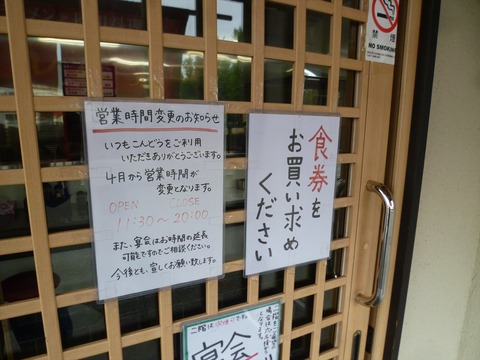 営業時間変更のお知らせ
いつもこんどうをご利用
いただきありがとうございます。
4月から営業時間が
変更となります。
OPEN CLOSE
11:30~20:00
また、宴会はお時間の延長
可能ですのでご相談ください。
今後とも、宜しくお願い致します。
食券を
お買い求め
ください
禁煙
NO SMOKING
二階は
宴会